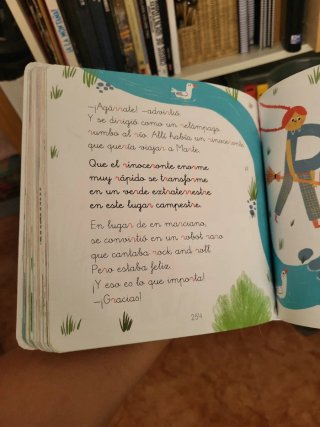 —¡Agárrate! —advirtió.
Y se dirigió como un relámpago
rumbo al río. Allí había un rinoceronte
que quería viajar a Marte.
Que el rinoceronte enorme
muy rápido se transforme
en un verde extraterrestre
en este lugar campestre.
En lugar de en marciano,
se convirtió en un robot raro
que cantaba rock and roll.
Pero estaba feliz.
¡Y eso es lo que importa!
—¡Gracias!
254